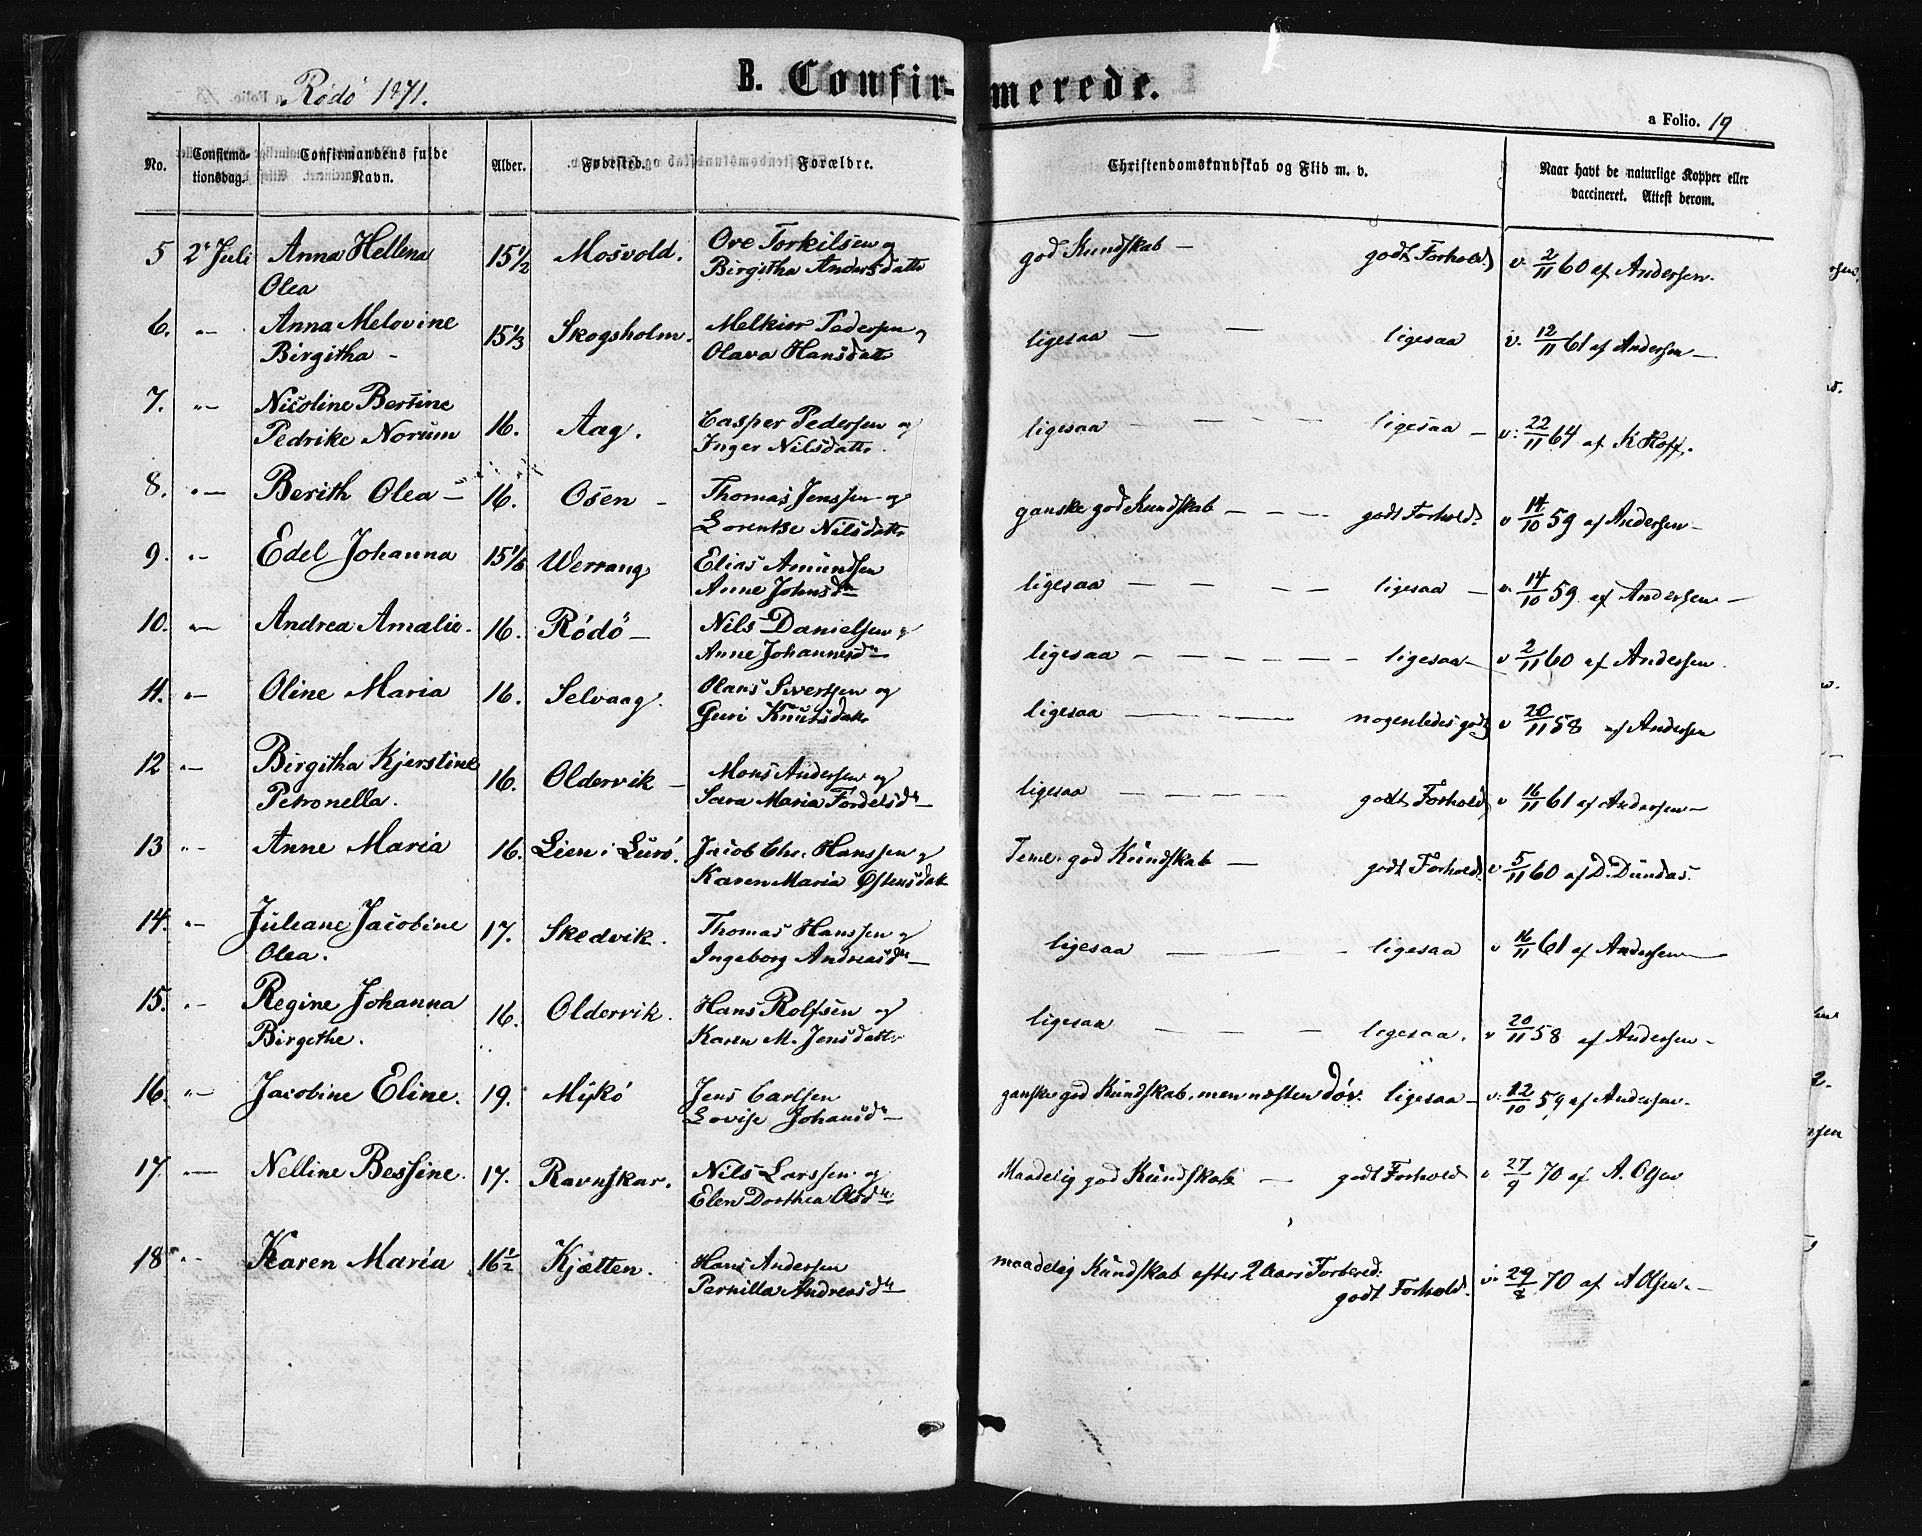 Rödö 1871.
B. Confirmerede.
a Folio. 19
No. Confirmationsdag. Confirmandens fulde Navn. Alder. Fødested. Forældre. Christendomskundskab og Flid m. v. Naar havt de naturlige Kopper eller vaccineret. Attest derom.
5 2 Juli Anna Hellena 15 1/2 Mosvold. Ove Torkilsen og god Kundskab — godt Forhold. v. 2/11 60 af Andersen.
Olea Birgitha Andersdattr
6. "— Anna Melovine 15 1/3 Skogsholm. Melkior Pedersen og ligesaa — — ligesaa v. 12/11 61 af Andersen —
Birgitha - Olava Hansdattr
7. "— Nicoline Bersine 16. Aag. Casper Pedersen og ligesaa — — — — ligesaa — v: 22/11 64 af K Hoff.
Pedrike Norum Inger Nilsdattr.
8. "— Berith Olea — 16. Osen — Thomas Jenssen og ganske god Kundskab — — — godt Forhold. v 14/10 59 af Andersen —
Lorentse Nilsdattr
9. "— Edel Johanna 15 1/6 Werrang Elias Amundsen ligesaa — — — — ligesaa — v. 14/10 59 af Andersen —
Anne Johnsdtr
10. "— Andrea Amalie. 16. Rödö — Nils Danielsen og ligesaa — — — — — ligesaa — v 2/11 60 af Andersen.
Anne Johannesdtr
11. "— Oline Maria 16. Selvaag. Olaus Sivertsen og ligesaa — — — — nogenledes godt v 20/11 58 af Andersen
Guri Knutsdattr
12 "— Birgitha Kjerstine 16. Oldervik — Mons Andersen og ligesaa — — — — godt Forhold v 16/11 61 af Andersen —
Petronella. Sara Maria Fordelsdtr
13 "— Anne Maria 16. Lien i Lurö. Jacob Chr. Hanssen og Teml. god Kundskab — godt Forhold. v 5/11 60 af D. Dundas.
Karen Maria Østensdattr
14. "— Juliane Jacobine 17. Skedvik. Thomas Hanssen og ligesaa — — — ligesaa v 16/11 61 af Andersen —
Olea. Ingeborg Andreasdtr
15. "— Regine Johanna 16. Oldervik. Hans Rolfsen og ligesaa — — — ligesaa. v 20/11 58 af Andersen —
Birgithe. Karen M. Jensdattr
16. "— Jacobine Eline. 19. Mykö Jens Carlsen ganske god Kundskab, men næsten döv. ligesaa — v: 12/10 59 af Andersen.
Lovise Johansdtr
17. — Nelline Bessine. 17. Ravnskar. Nils Larssen og Maadelig god Kundskab — godt Forhold v 27/9 70 af A. Olsen
Elen Dorthea Olsdtr
18 "— Karen Maria 16 1/2 Kjætten. Hans Andersen maadelig Kundskab efter 2 Aars Forbered: v. 29/8 70 af A Olsen. —
Pernilla Andreasdtr godt Forhold.